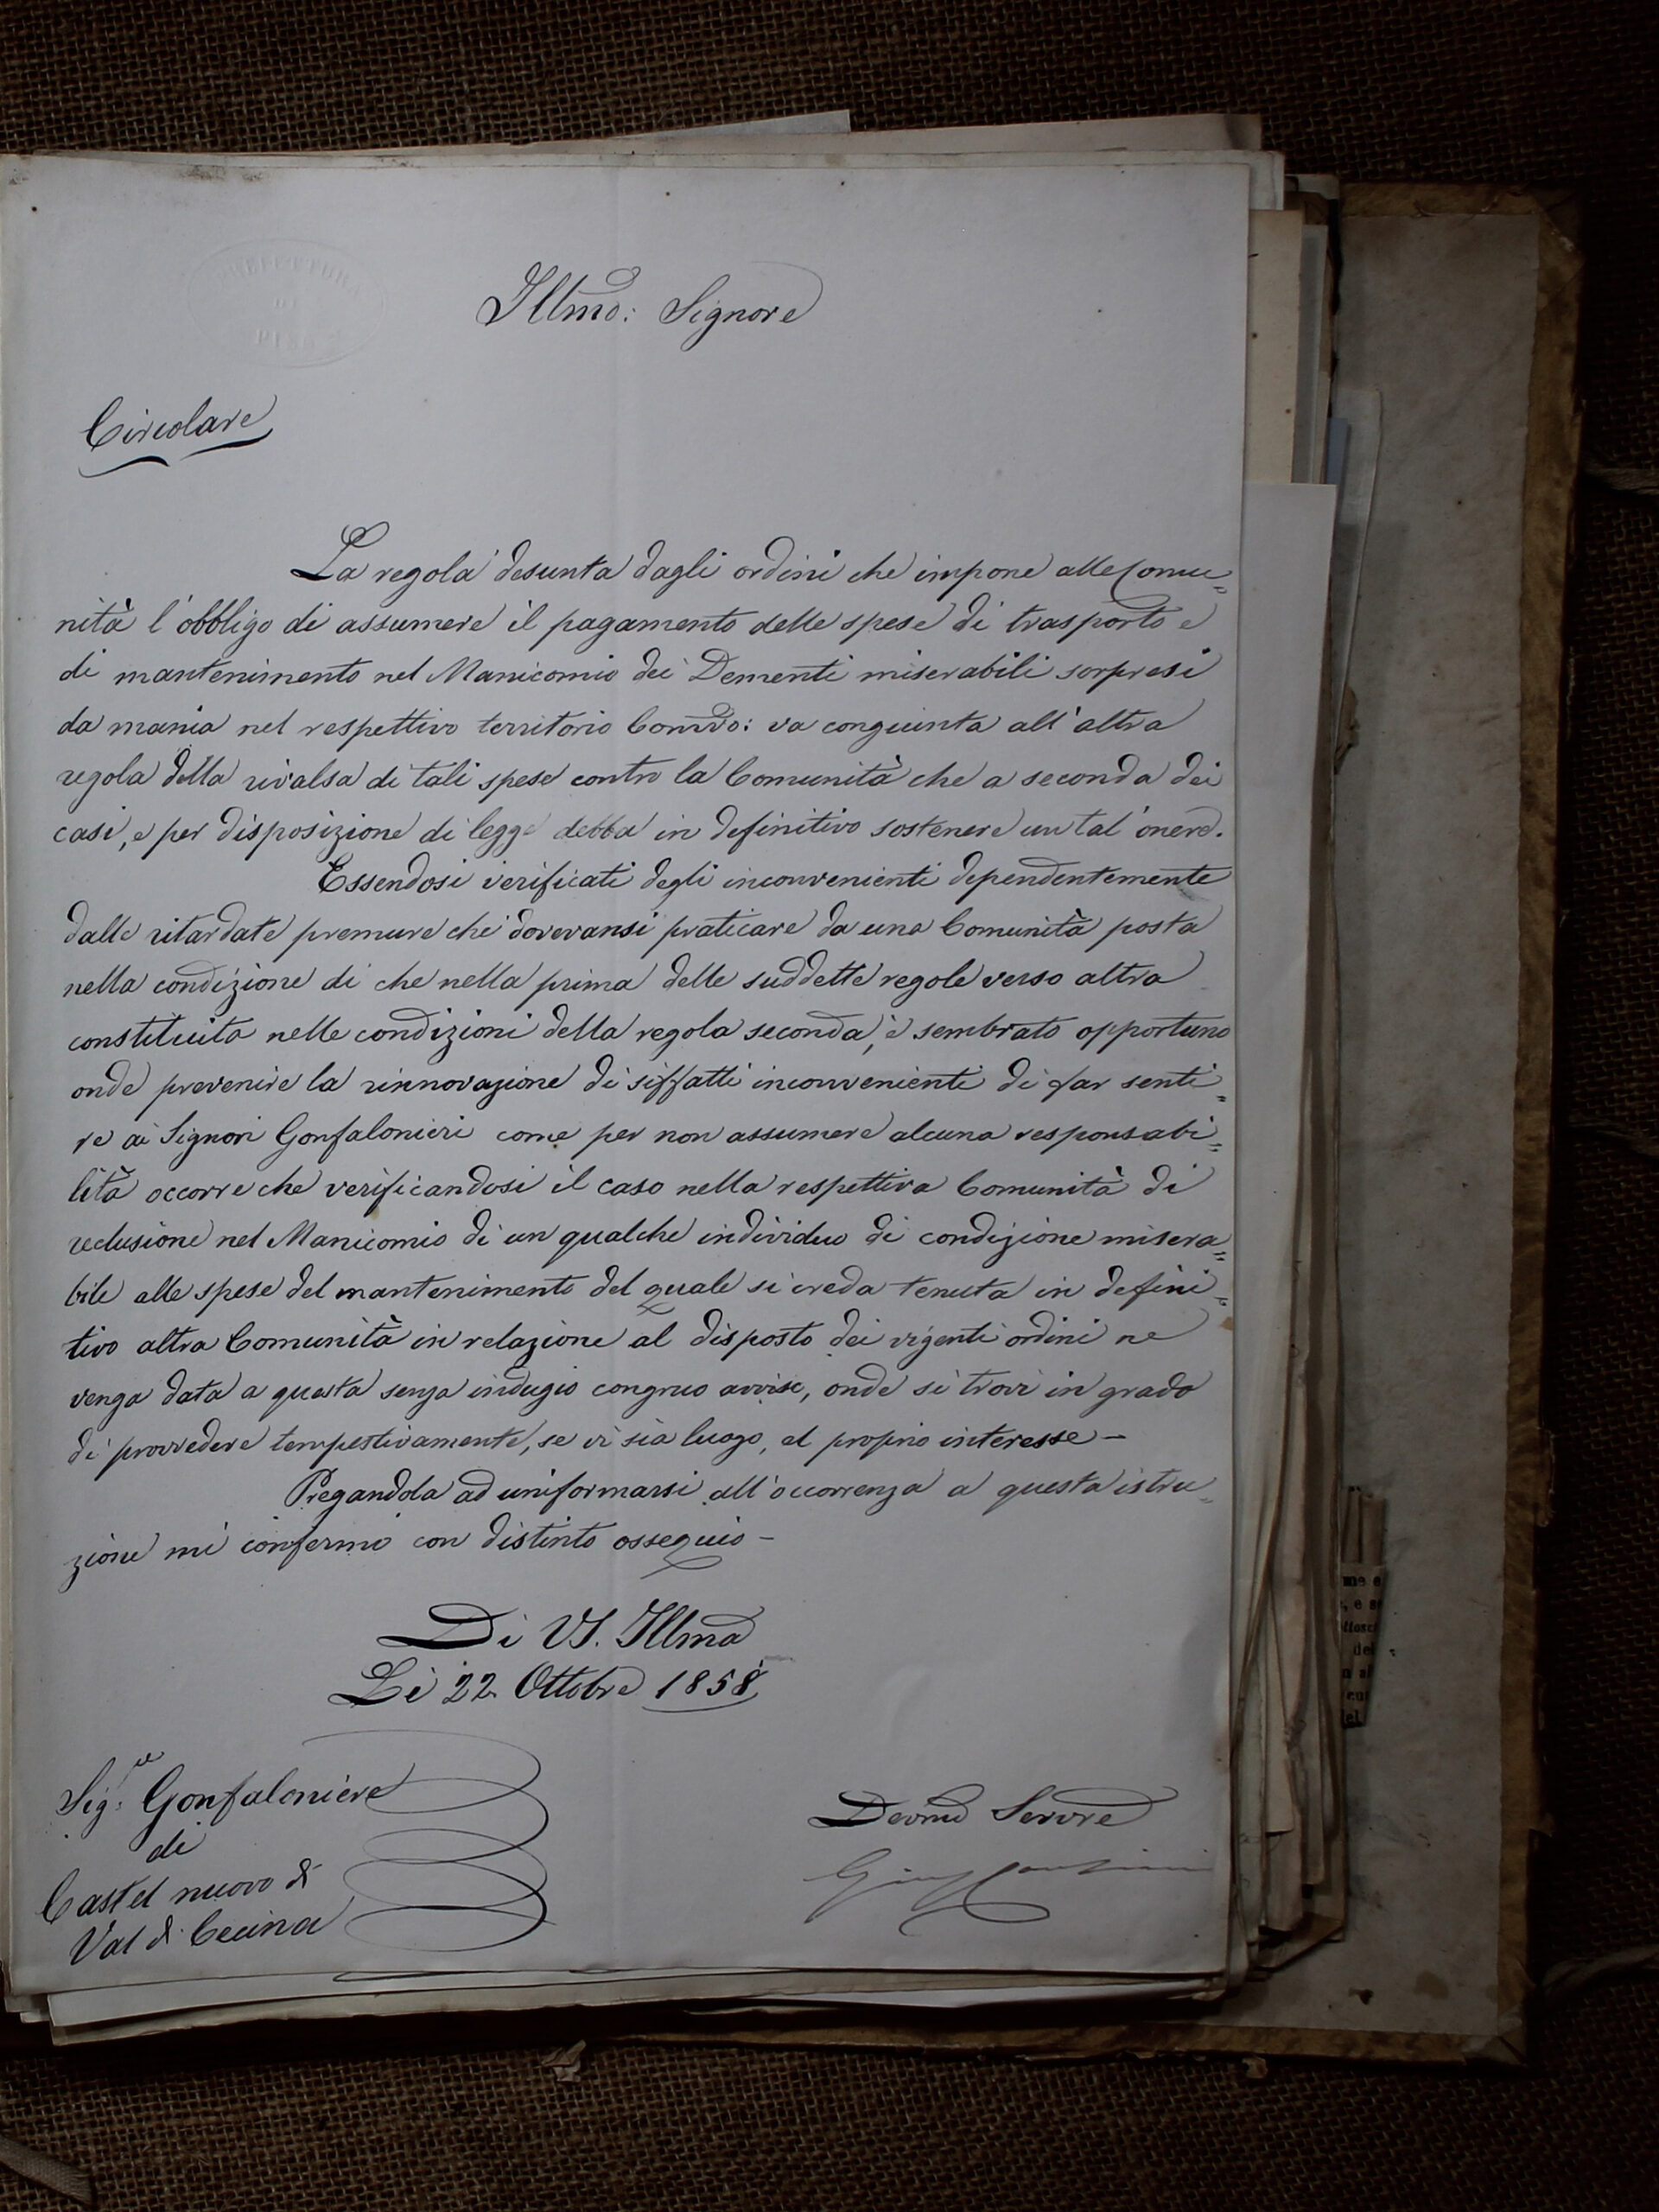 PREFETTURA
DI
PISA
Illmo: Signore
Circolare
La regola desunta dagli ordini che impone alle Comu=
nità l'obbligo di assumere il pagamento delle spese di trasporto e
di mantenimento nel Manicomio dei Dementi miserabili sorpresi
da mania nel respettivo territorio Comvo: va congiunta all'altra
regola della rivalsa di tali spese contro la Comunità che a seconda dei
casi, e per disposizione di legge debba in definitivo sostenere un tal'onere.
Essendosi verificati degli inconvenienti dependentemente
dalle ritardate premure che doveransi praticare da una Comunità posta
nella condizione di che nella prima delle suddette regole verso altra
constituita nelle condizioni della regola seconda, è sembrato opportuno
onde prevenire la rinnovazione di siffatti inconvenienti di far senti=
re ai Signori Gonfalonieri come per non assumere alcuna responsabi=
lità occorre che verificandosi il caso nella respettiva Comunità di
reclusione nel Manicomio di un qualche individuo di condizione misera=
bile alle spese del mantenimento del quale si creda tenuta in defini=
tivo altra Comunità in relazione al disposto dei vigenti ordini ne
venga data a questa senza indugio congruo avviso, onde si trovi in grado
di provvedere tempestivamente, se vi sia luogo, al proprio interesse -
Pregandola ad uniformarsi all'occorrenza a questa istru=
zione mi confermo con distinto ossequio -
Di VS. Illma
Li 22 Ottobre 1858
Sig:re Gonfaloniere
di
Castel nuovo di
Val di Cecina
Devmo Servre